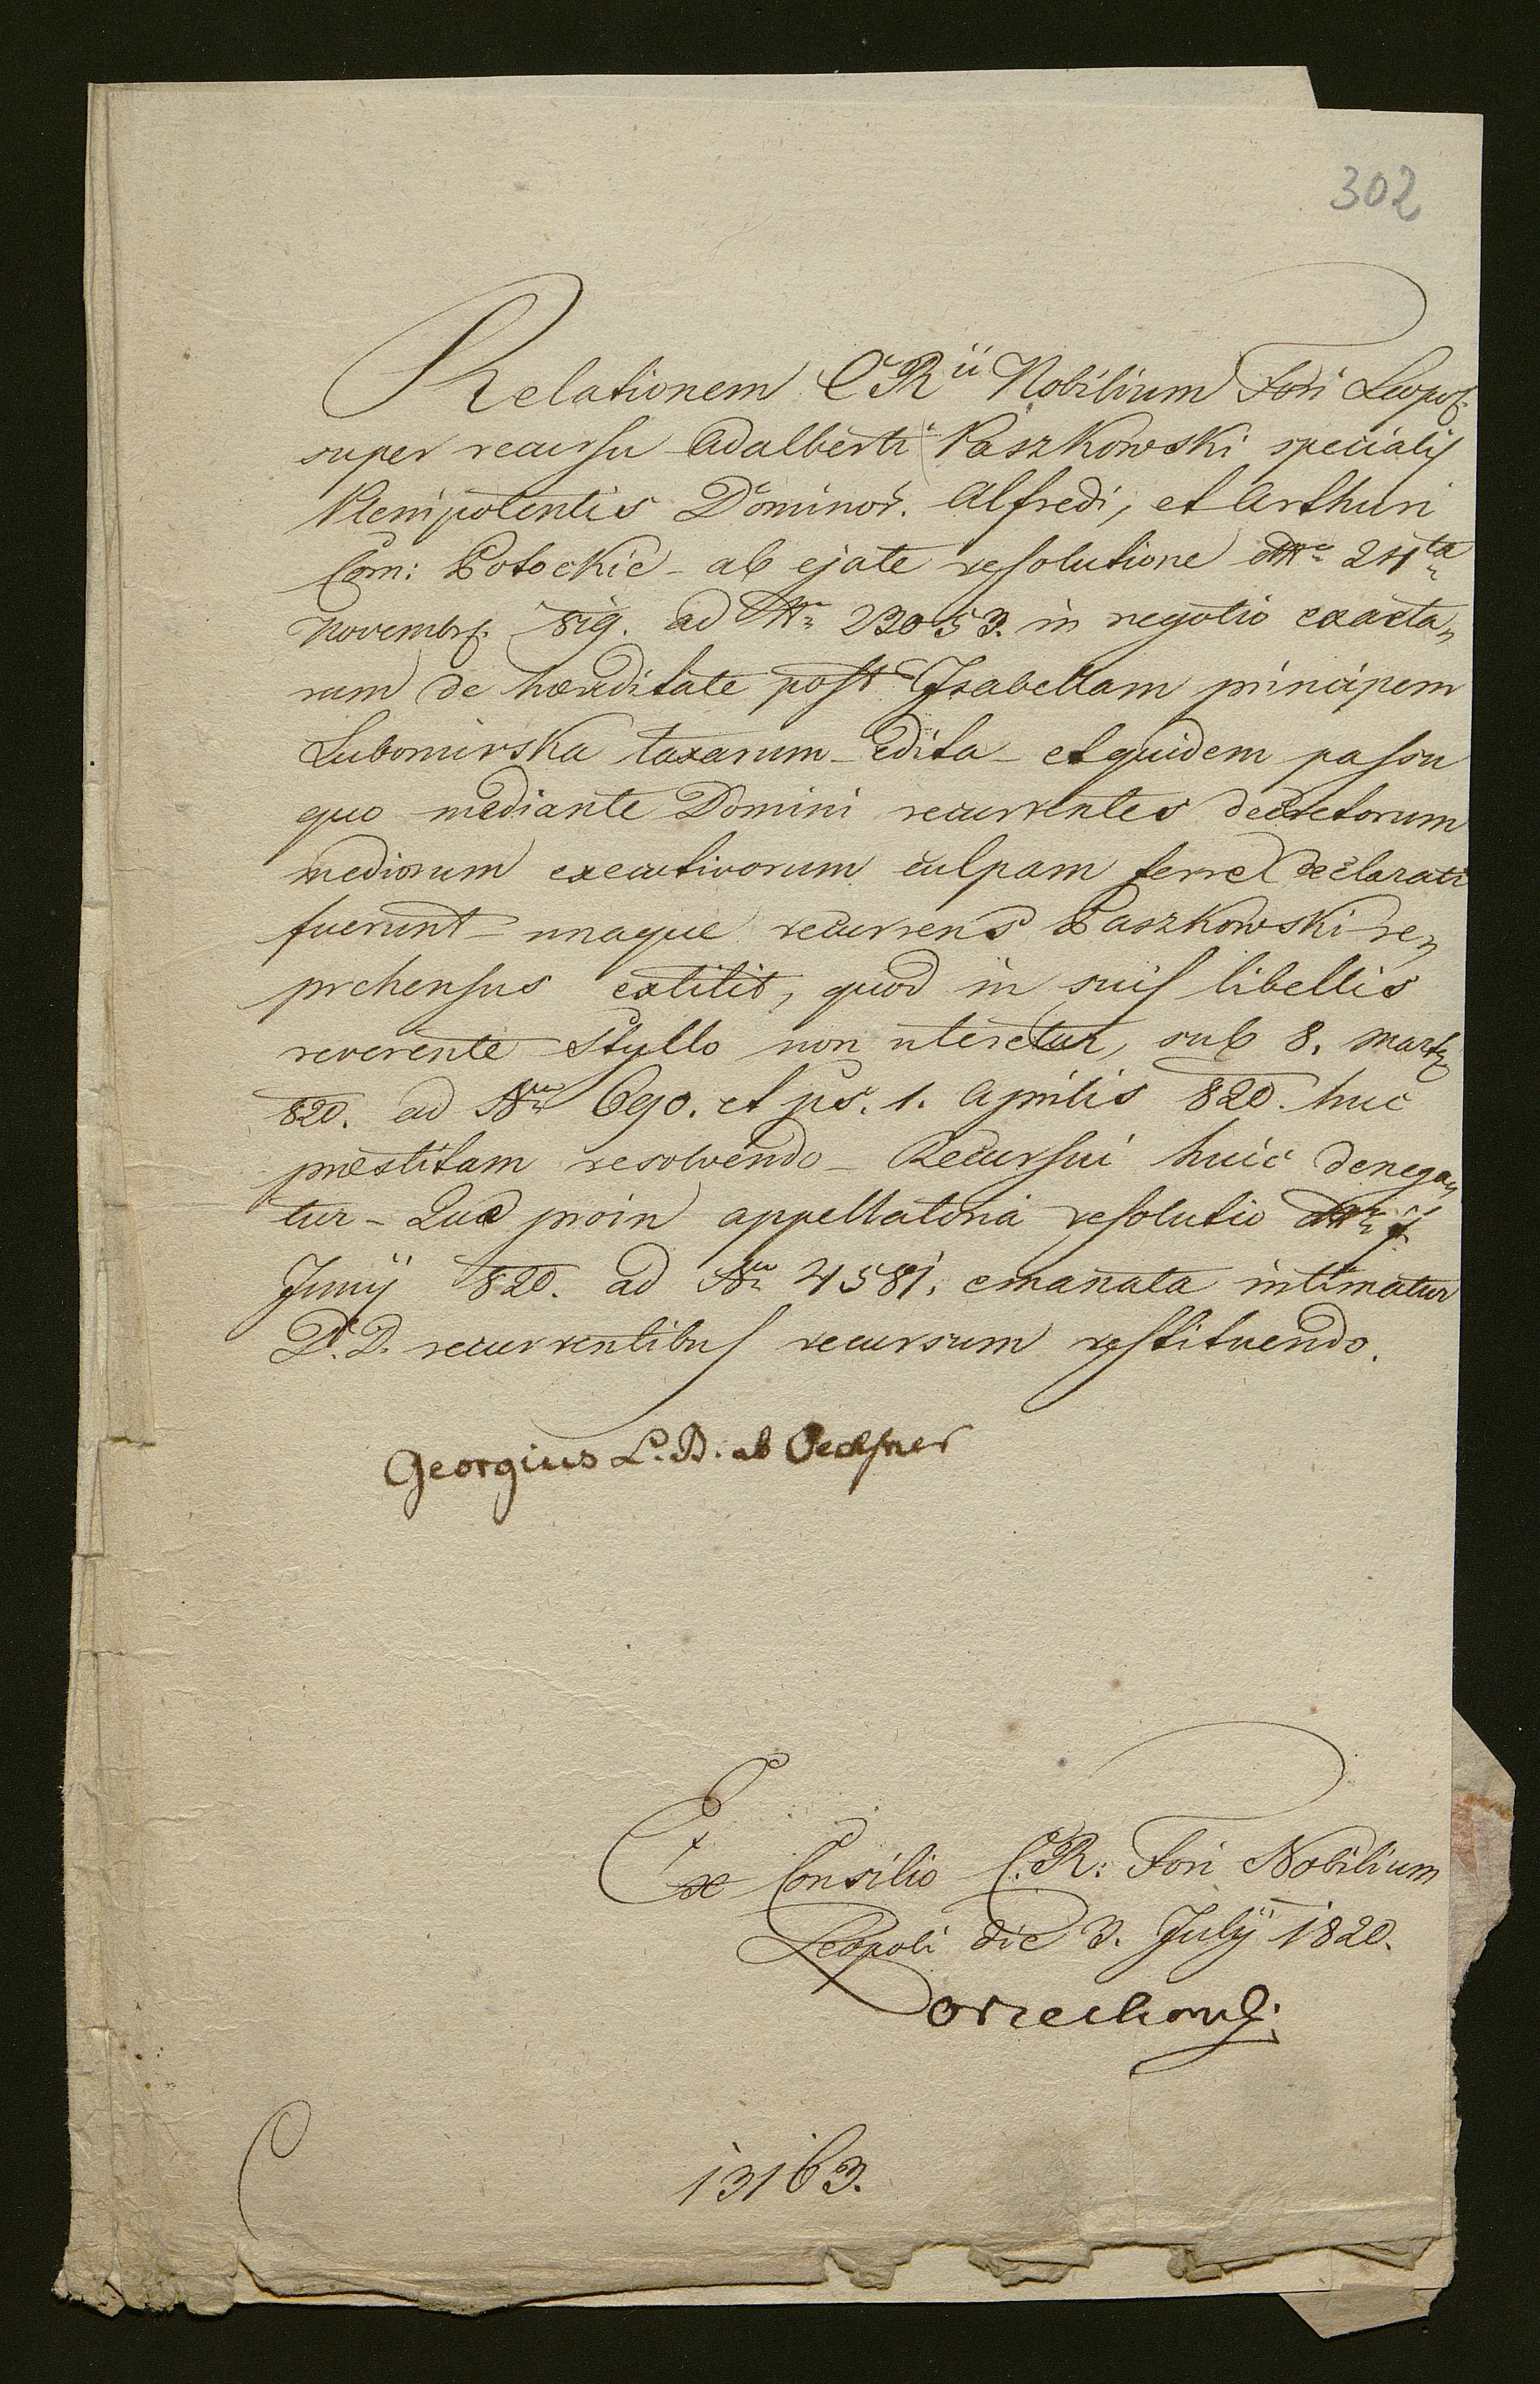 302
Relationem C R ii Nobilium Fori Leopol.
super recursu Adalberti Paszkowski specialis
Plenipotentis Dominor. Alfredi, et Arthuri
Com: Potockie - ab ejate resolutione 24ta
Novembr. 819. ad Nr 23053. in negotio exacta„
rum de hæreditate post Isabellam principem
Lubomirska taxarum - edita - et quidem passu
quo mediante Domini recurrentes decretorum
mediorum executivorum culpam ferre declarati
fuerunt - unaque recurrens Paszkowski re„
prehensus extitit, quod in suis libellis
reverente Styllo non uteretur, sub 8. Martii
820. ad Nrum 690. et ps. 1. Aprilis 820. huc
præstitam resolvendo - Recursui huic denega„
tur - Quæ proin appellatoria resolutio
Junij 820. ad Nrum 4581. emanata intimatur
D. D. recurrentibus recursum restituendo.
Georgius L. B. ab Oechsner
Ex Consilio C. R: Fori Nobilium
Leopoli die 3. Julij 1820.
13163.